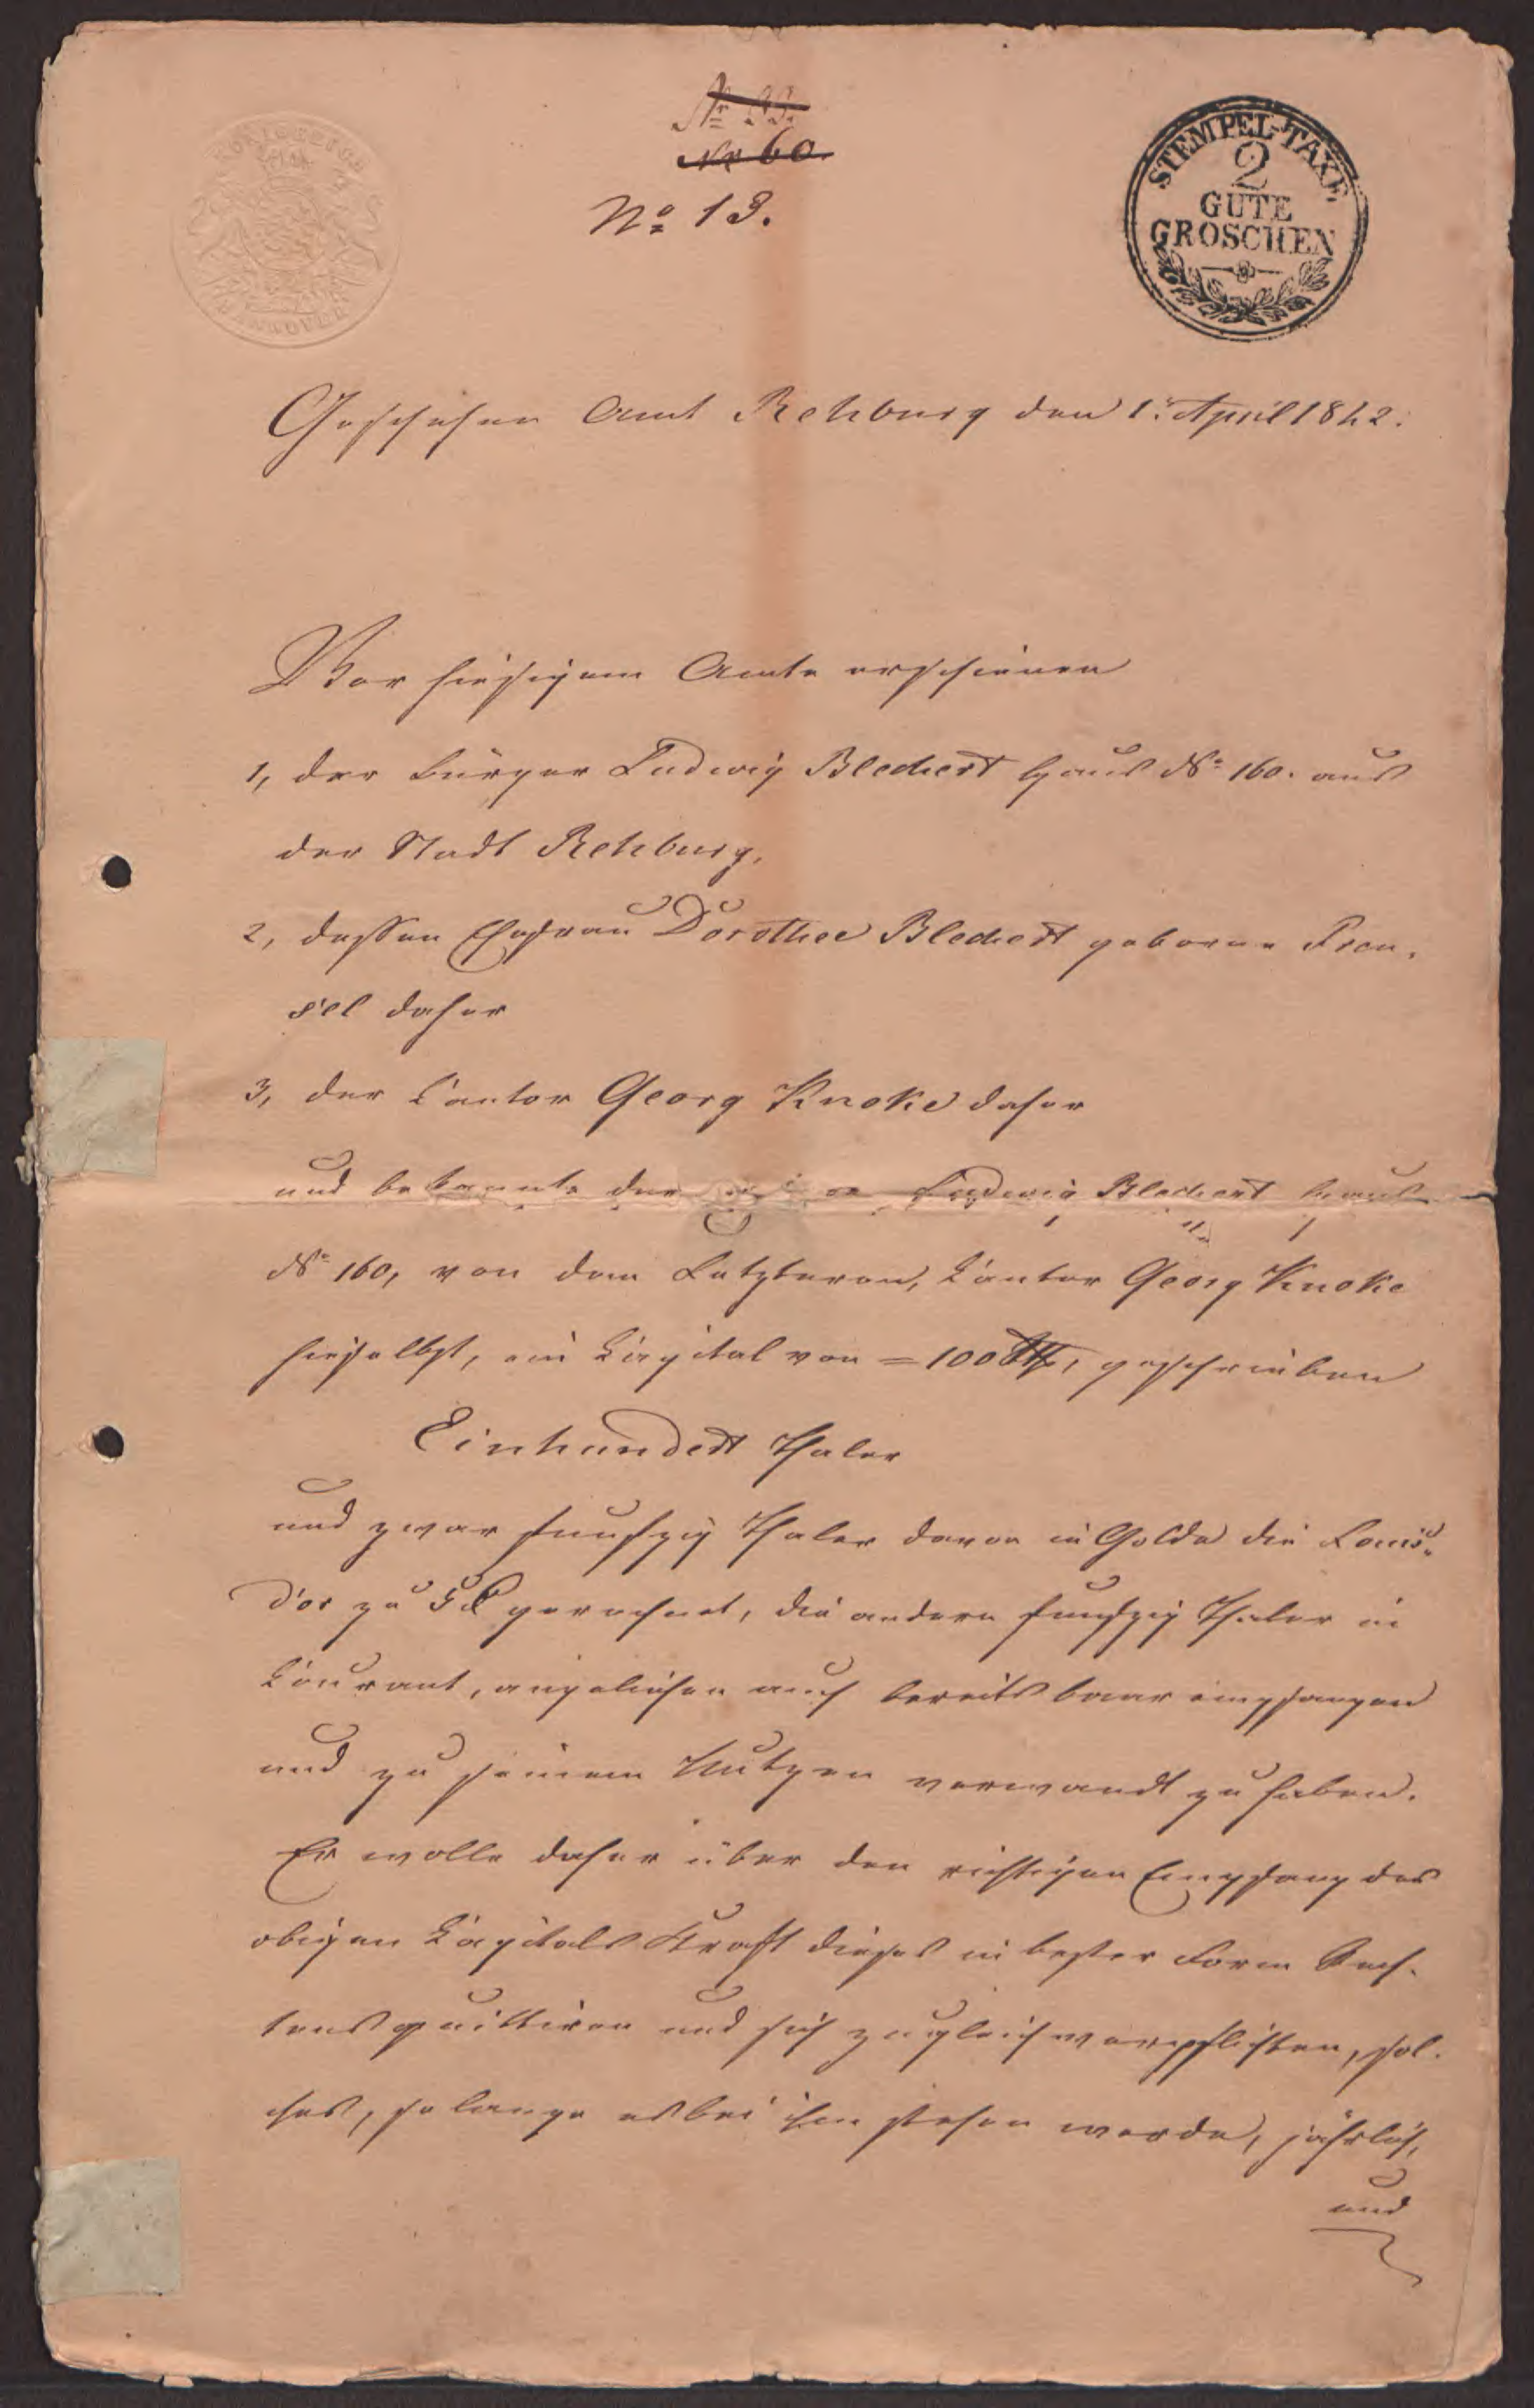 No 60.
No 13.
STEMPEL-TAXE.
2
GUTE
GROSCHEN
HANNOVER
Geschehen Amt Rehburg den 1. April 1842.
Vor hiesigem Amte erschienen
1, der Bürger Ludwig Blechert Haus No 160. aus
der Stadt Rehburg,
2, dessen Ehefrau Dorothee Blechert geborne Fren-
sel daher
3, der Cantor Georg Knoke daher
und bekannte der Ludwig Blechert Haus
No 160, von dem Letzteren, Cantor Georg Knoke
hieselbst, ein Capital von = 100 Rthlr, geschrieben
Einhundert Thaler
und zwar funfzig Thaler davon in Golde die Louis-
d'or zu 5 Rthlr gerechnet, die andern funfzig Thaler in
Courant, angeliehen auch bereits baar empfangen
und zu seinem Nutzen verwandt zu haben.
Er wolle daher über den richtigen Empfang des
obigen Capitals Kraft dieses in bester Form Rech-
tens quittiren und sich zugleich verpflichten, sol-
ches, so lange es bei ihm stehen werde, jährlich,
und